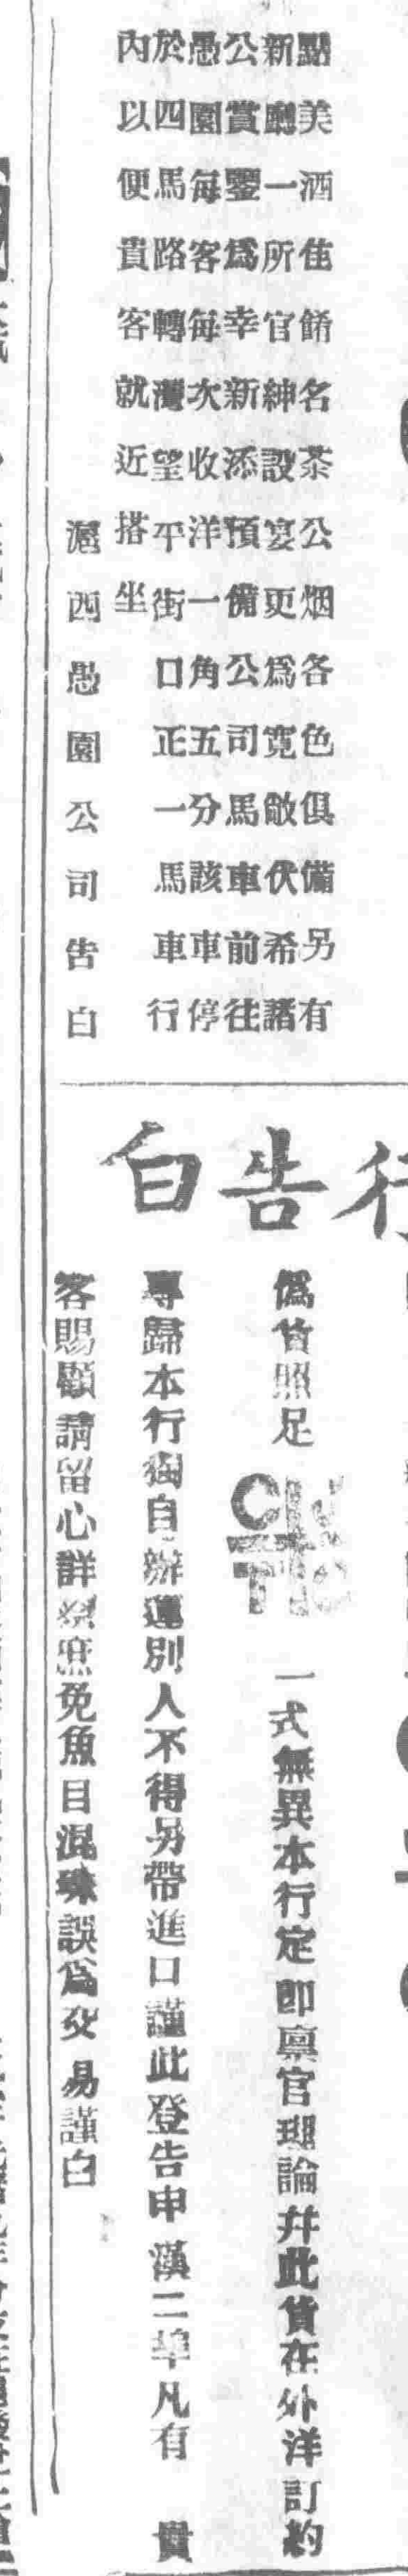 點美酒佳餚名茶公烟各色俱備另有
新廳一所官紳設宴更爲寬敞伏希諸
公賞鑒爲幸新添預備公司馬車前往
愚園每客每次收洋一角五分該車停
於四馬路轉灣望平街口正一馬車行
內以便貴客就近搭坐
滬西愚園公司告白
行告白
僞貨照足
一式無異本行定即禀官理論幷此貨在外洋訂約
專歸本行獨自辦運別人不得另帶進口謹此登告申漢二埠凡有 貴
客賜顧請留心詳察庶免魚目混珠誤爲交易謹白